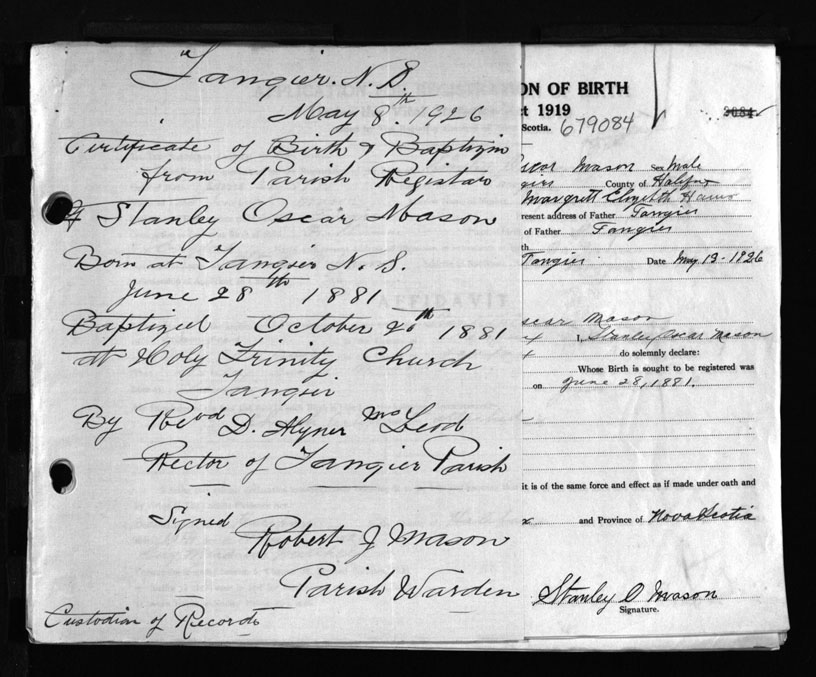 Tangier. N.S.
May 8.th 1926
Certificate of Birth & Baptizm
from Parish Registar
of Stanley Oscar Mason
Born at Tangier N.S.
June 28th 1881
Baptized October 20th 1881
at Holy Trinity Church
Tangier
By Revd D.
Rector of Tangier Parish
Signed
Robert J Mason
Parish Warden
Custodian of Records
AFFIDAVIT
ON OF BIRTH
ct 1919
Scotia. 679084
scar Mason Sex Male
gier County of Halifax
Margrett Elizabeth
resent address of Father Tangier
of Father Tangier
th
Tangier Date May 13-1926
scar Mason
I, Stanley Oscar Mason
do solemnly declare:
Whose Birth is sought to be registered was
on June 28, 1881.
it is of the same force and effect as if made under oath and
x and Province of Nova Scotia
Stanley O Mason
Signature.